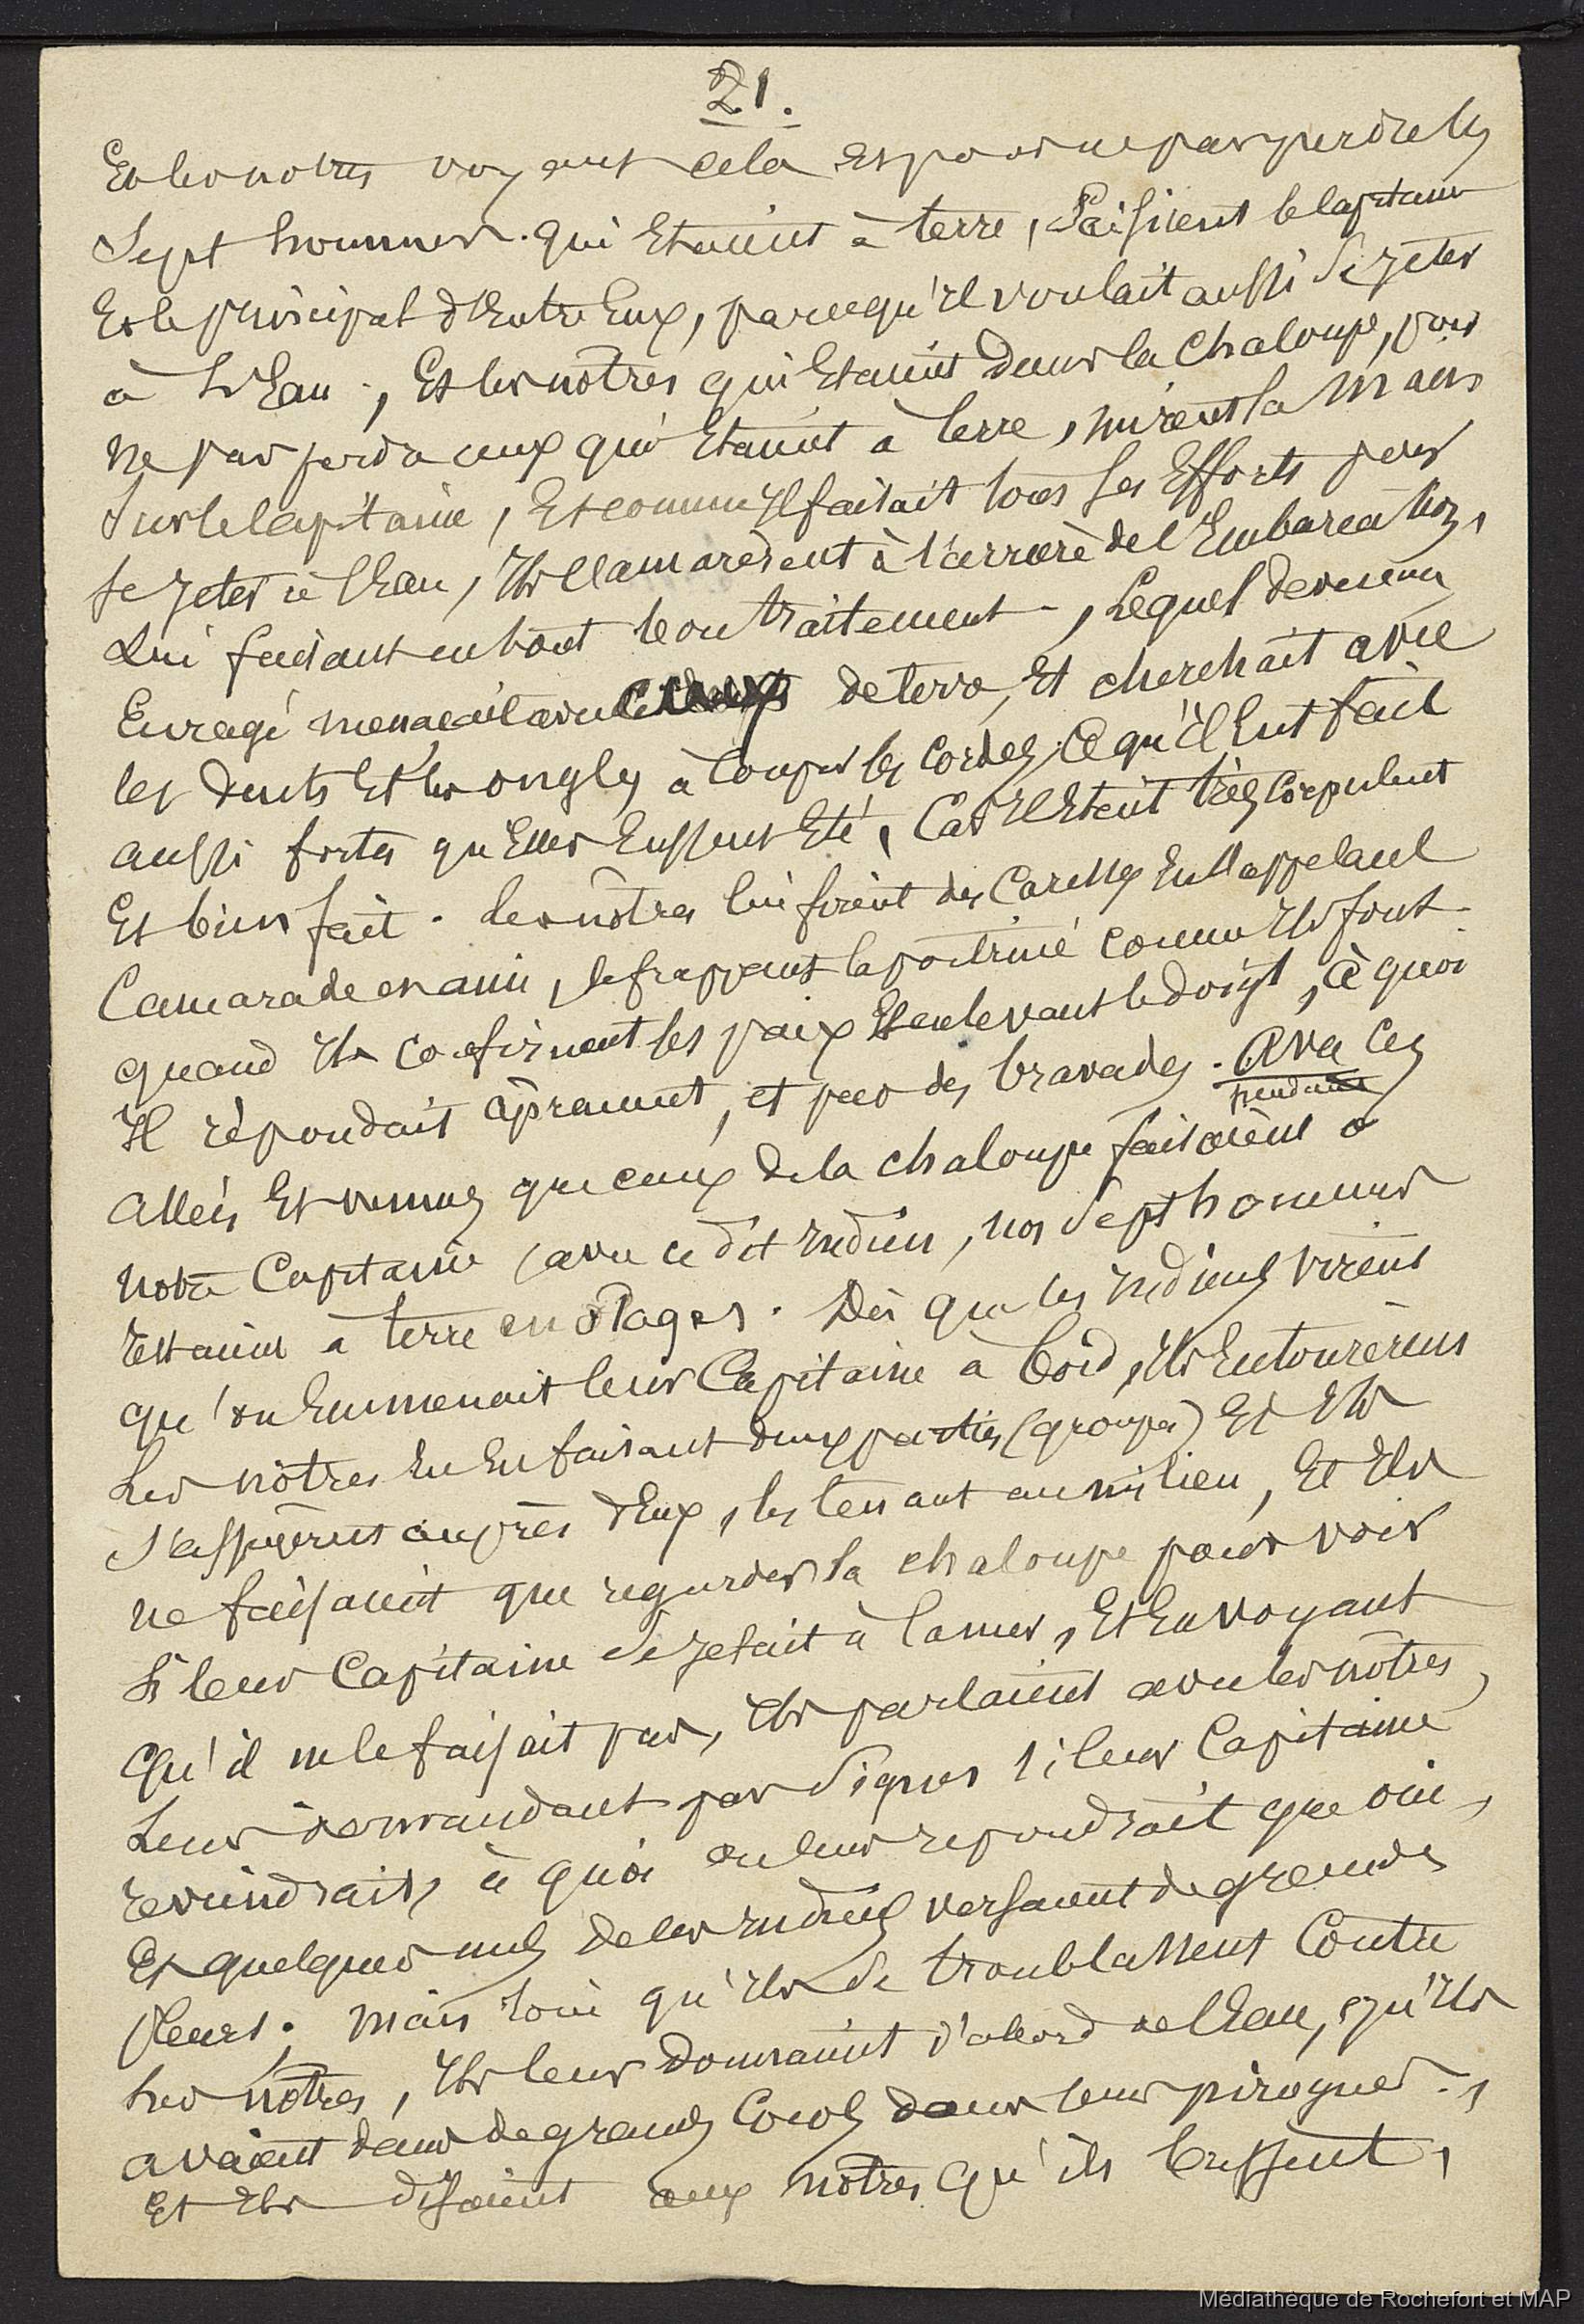 21.
Et les notres voyant cela Et pour ne pas perdre les
Sept hommes qui Etaient à terre, Saisirent le Capitaine
Et le principal d'Entre Eux, parcequ'il voulait aussi se jeter
à l'Eau ; Et les nôtres qui Etaient dans la Chaloupe, pour
ne pas perdre ceux qui Etaient à terre, mirent la main
Sur le Capitaine, Et comme Il faisait tous ses Efforts pour
se jeter à l'Eau, Ils l'amarèrent à l'arrière de l'Embarcation,
Lui faisant en tout bon traitement, Lequel devenu
Enragé menaçait avec ceux de terre, Et cherchait avec
les dents Et les ongles à Couper les Cordes, Ce qu'il Eut fait
aussi fortes qu'Elles Eussent Eté, Car Il Etait très Corpulent
Et bien fait. les nôtres lui firent des Caresses En l'appelant
Camarade en ami, le frappant la poitrine comme Ils font
quand Ils confirment les paix Et en levant le doigt, à quoi
Il répondait âprement, et par des bravades. Ava Ces
pendant
Allées Et venues que ceux de la chaloupe faisaient à
notre Capitaine avec ce dit Indien, nos Sept hommes
Etaient à terre en otages. Dès que les Indiens virent
qu'on Emmenait leur Capitaine à bord, Ils Entourèrent
Les nôtres En En faisant deux parties (groupes) Et Ils
S'assirent auprès d'Eux, les tenant au milieu, Et Ils
ne faisaient que regarder la chaloupe pour voir
Si leur Capitaine se jetait à la mer, Et En voyant
Qu'il ne le faisait pas, Ils parlaient avec les nôtres,
Leur demandant par Signes si leur Capitaine
reviendrait, à quoi on leur repondrait que oui,
Et quelques uns de les Indiens versaient de grands
pleurs. Mais loin qu'Ils se troublassent Contre
les nôtres, Ils leur donnaient d'abord de l'Eau, qu'Ils
avaient dans de grands Cocos dans leurs pirogues,
Et Ils disaient aux nôtres qu'ils bussent,
Médiathèque de Rochefort et MAP